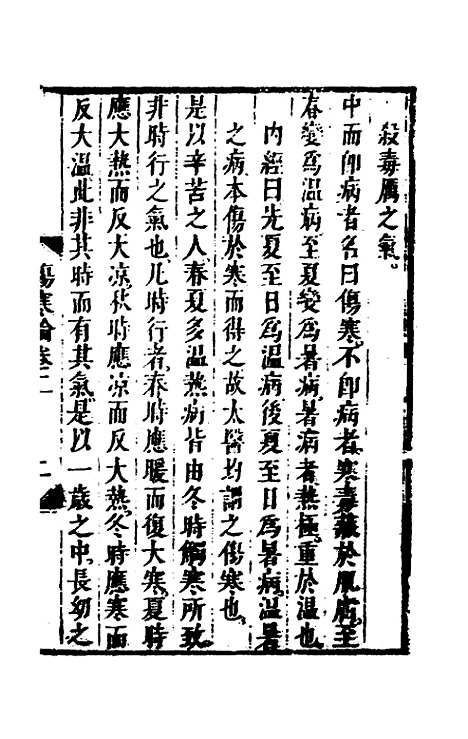 殺毒厲之氣。
中而卽病者名曰傷寒。不卽病者、寒毒藏於肌膚。至
春變爲溫病、至夏變爲暑病。暑病者、熱極重於溫也
內經曰先夏至日爲溫病後夏至日爲暑病。溫暑
之病、本傷於寒而得之故太醫均謂之傷寒也。
是以辛苦之人、春夏多溫熱病皆由冬時觸寒所致。
非時行之氣也、凡時行者、春時應暖而復大寒。夏時
應大熱而反大凉、秋時應凉而反大熱。冬時應寒而
反大溫此非其時而有其氣。是以一歲之中、長幼之
傷寒論卷二
二